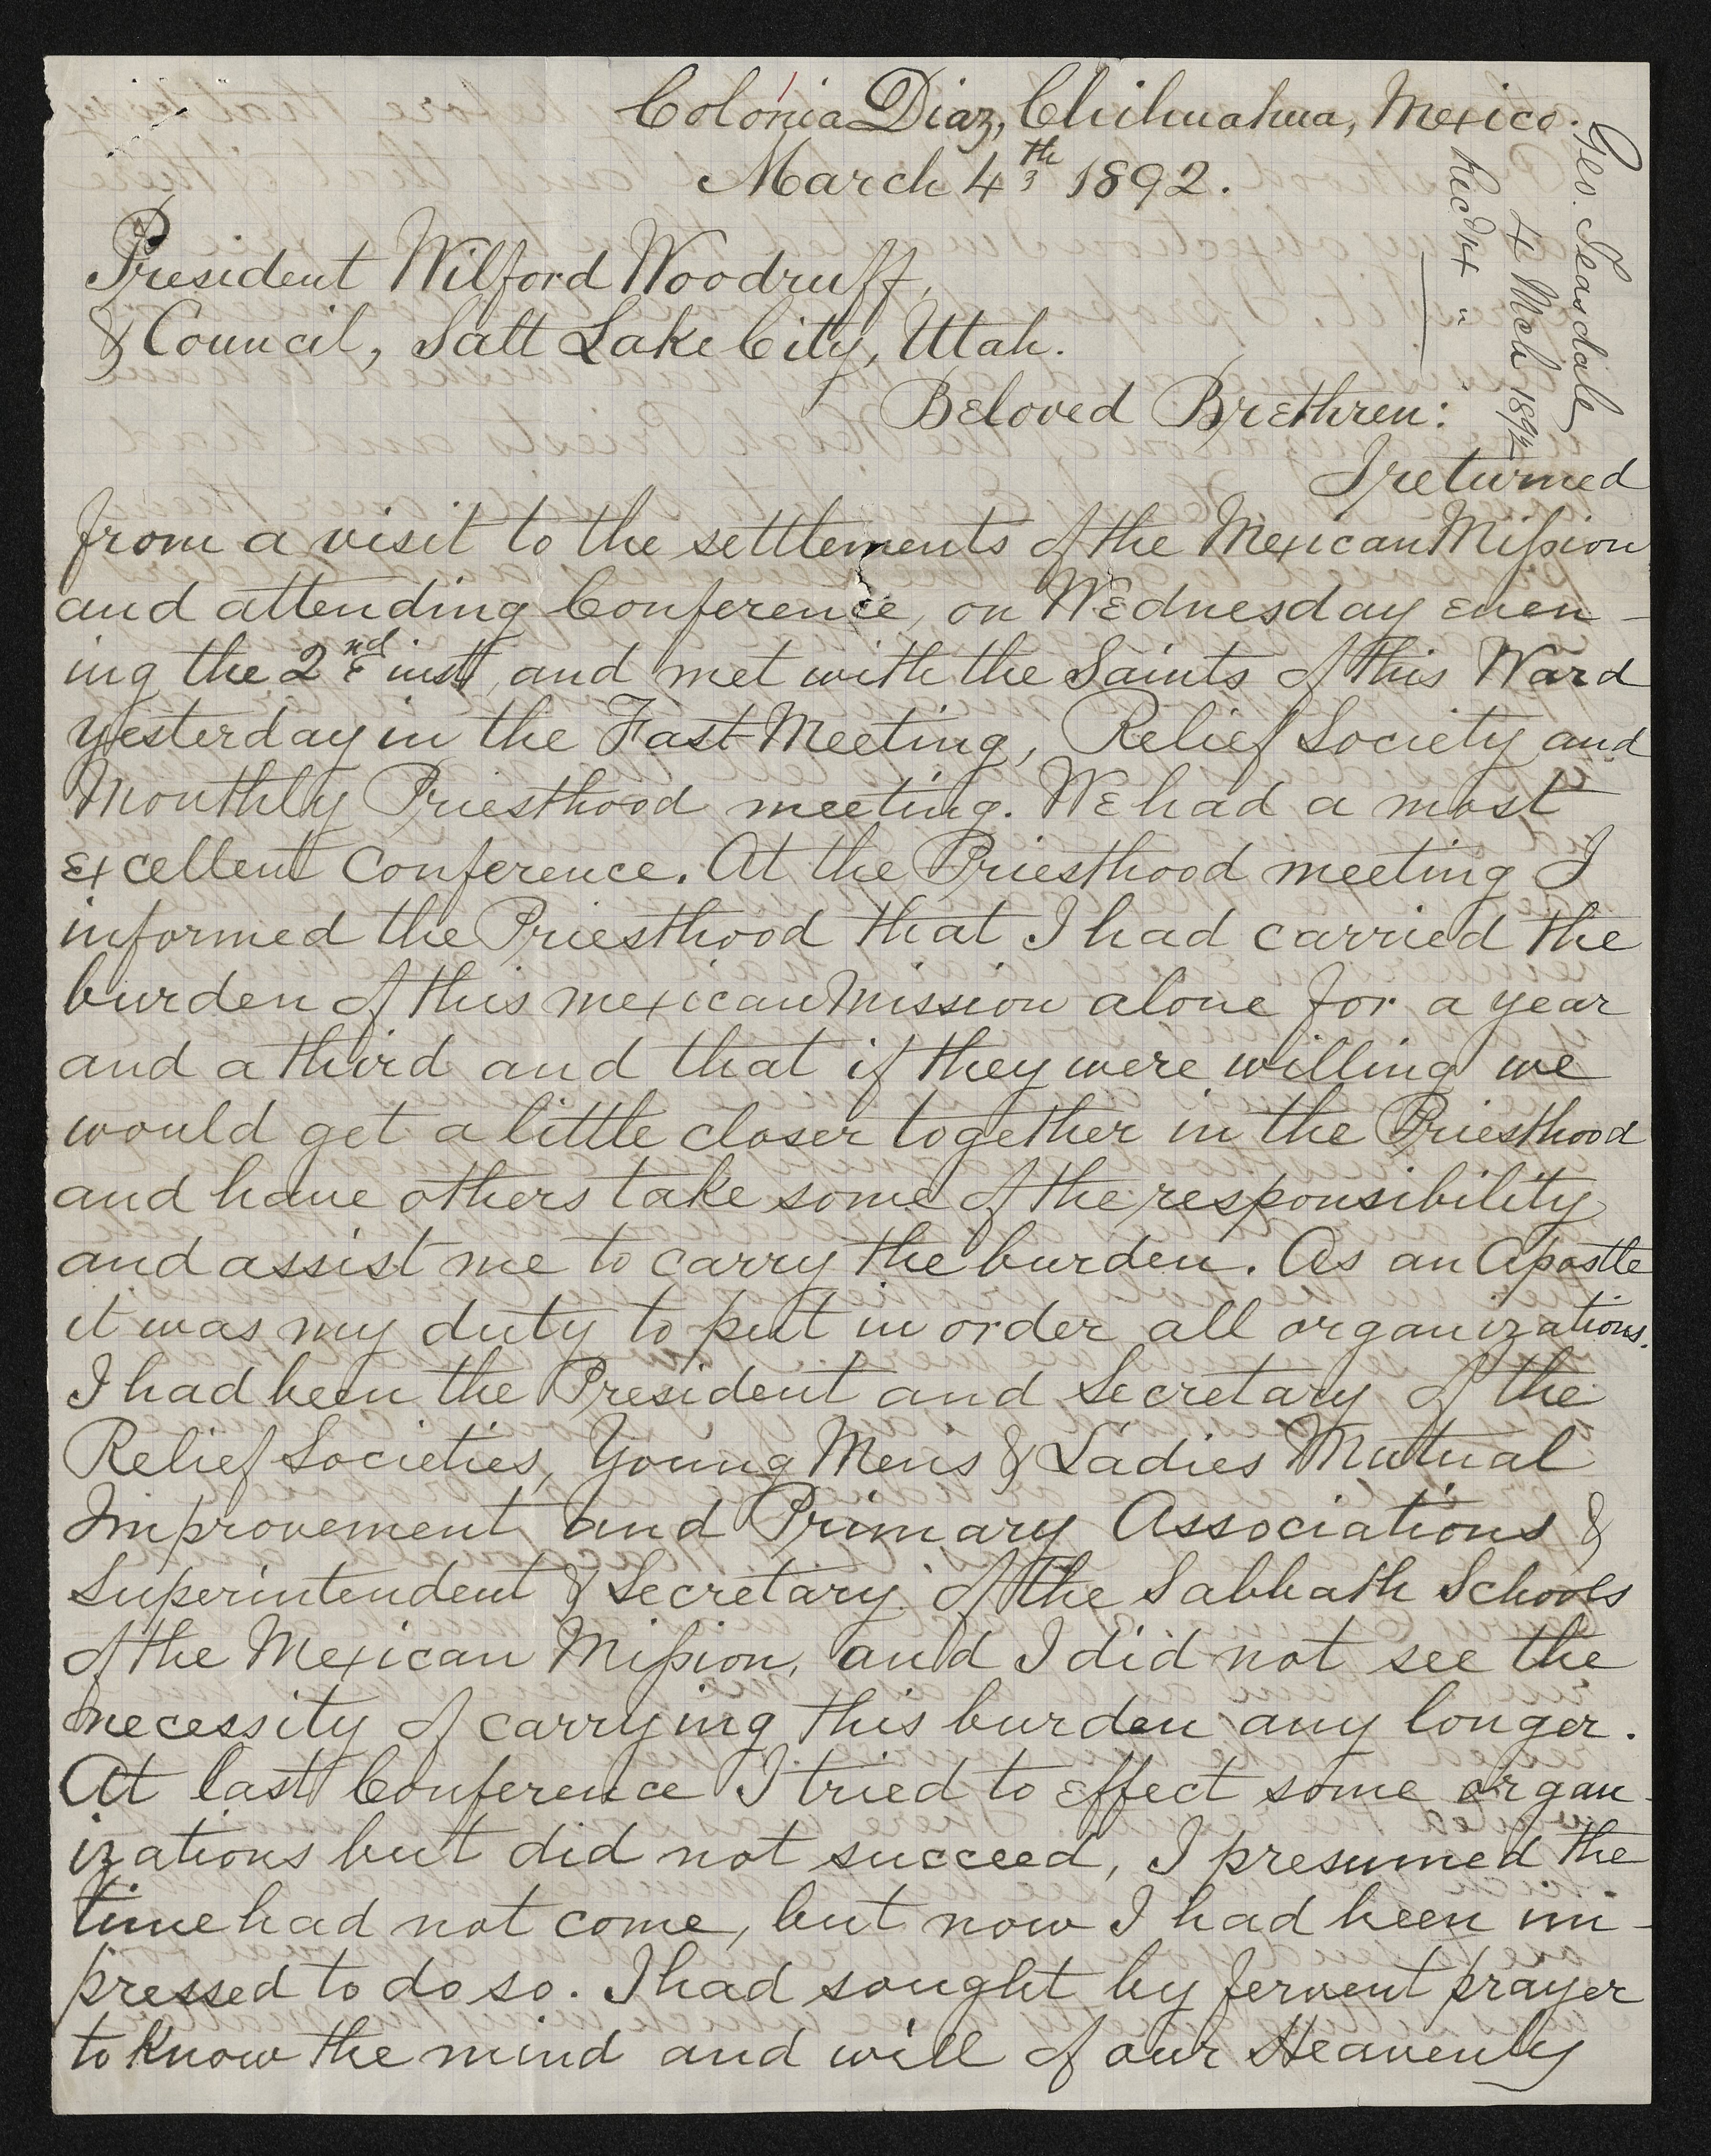 Colonia Diaz, Chihuahua, Mexico.
March 4th 1892.
Geo. Teasdale
4 Mch 1892
Recd 14 "
President Wilford Woodruff,
& Council, Salt Lake City, Utah.
Beloved Brethren:
I returned
from a visit to the settlements of the Mexican Mission
and attending Conference, on Wednesday even-
ing the 2nd inst, and met with the Saints of this Ward
yesterday in the Fast Meeting, Relief Society and
Monthly Priesthood meeting. We had a most
excellent Conference. At the Priesthood meeting I
informed the Priesthood that I had carried the
burden of this mexican mission alone for a year
and a third and that if they were willing we
would get a little closer together in the Priesthood
and have others take some of the responsibility
and assist me to carry the burden. As an Apostle
it was my duty to put in order all organizations.
I had been the President and Secretary of the
Relief Societies, Young Mens & Ladies Mutual
Improvement and Primary Associations &
Superintendent & Secretary of the Sabbath Schools
of the Mexican Mission, and I did not see the
necessity of carrying this burden any longer.
At last Conference I tried to effect some organ-
izations but did not succeed, I presumed the
time had not come, but now I had been im-
pressed to do so. I had sought by fervent prayer
to know the mind and will of our Heavenly